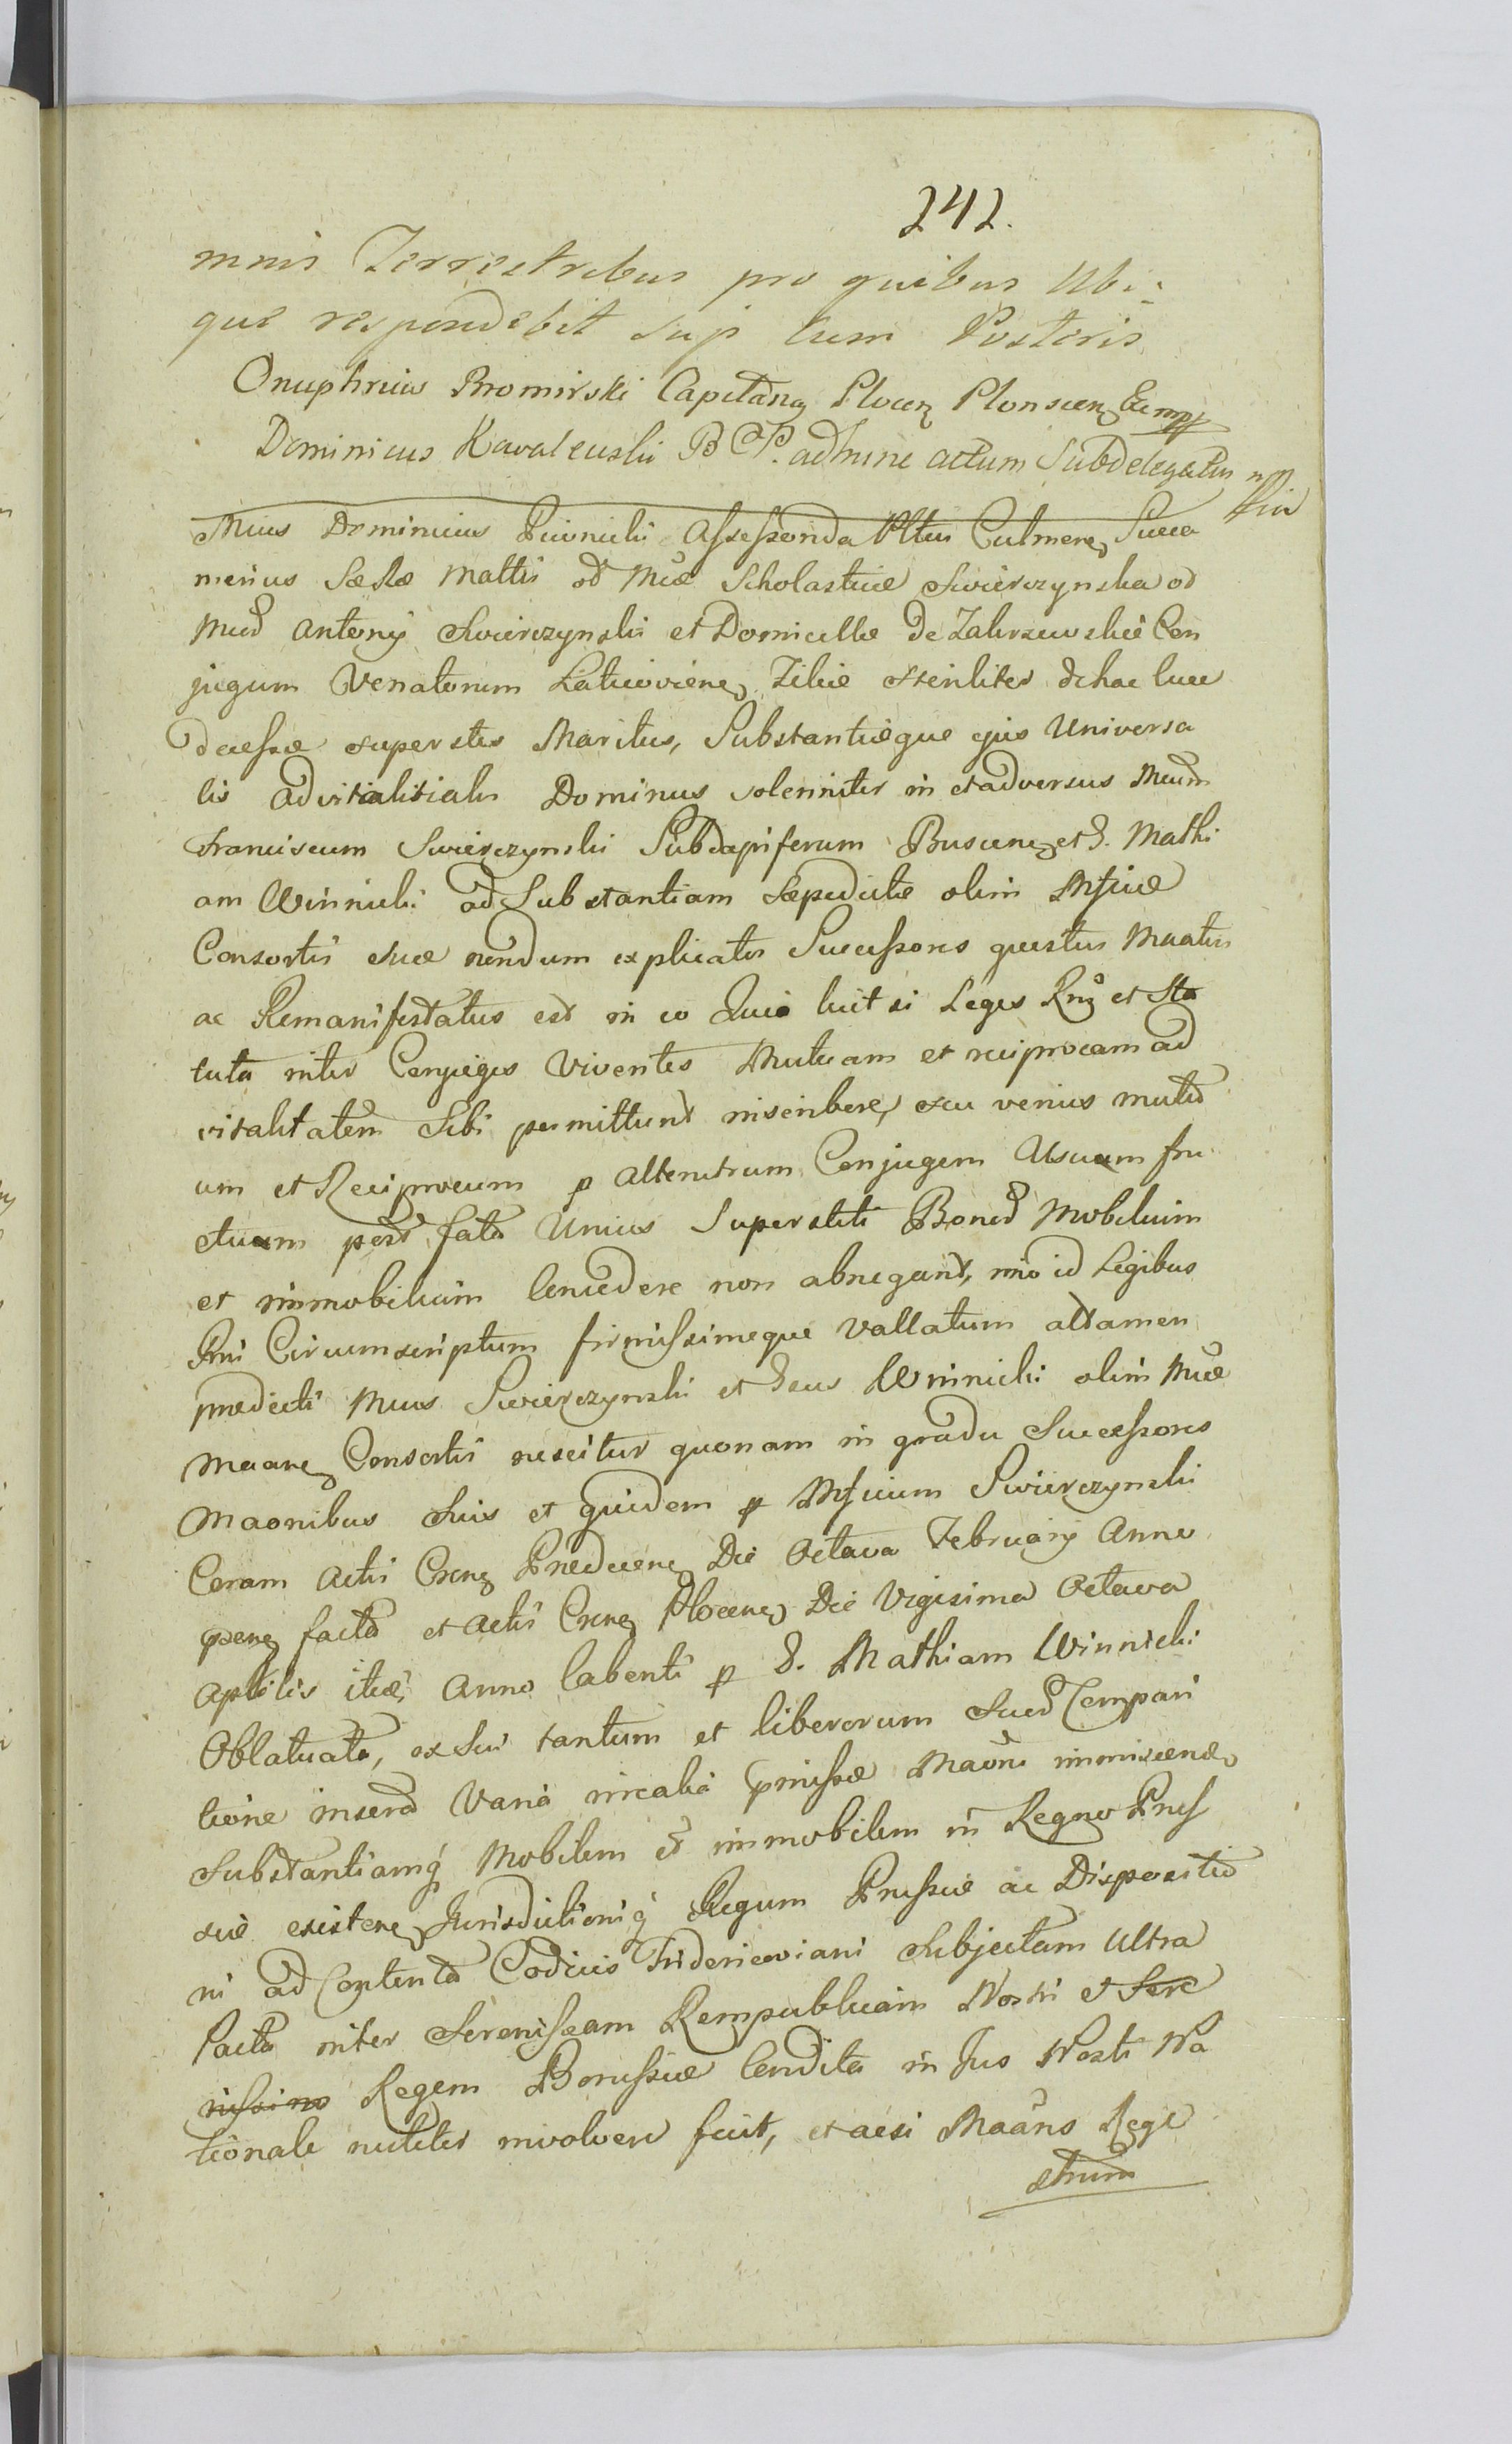 242.
mnis Terrestribus pro quibus Ubi:
que respondebit sup cum Posteris
Onuphrius Bromirski Capitang Plocen Plonscen
Dominicus Kowalewski B P. ad hunc actum Subdelegatus
Mcus Dominicus Piwnicki Assessonda Pltus Culmen Succa
merius Sae Rae Mattis od Mcae Scholasticae Swierczynska od
Mcod Antonij Swierczynski et Domicellae de Zakrzewskie Con
jugum Venatorum Laticovien Filiae steriliter de hac luce
decessae superstes Maritus, Substantiaeque ejus Universa
lis advitalitialis Dominus solenniter in et adversus Mcum
Franciscum Swierczynski Subdapiferum Buscen et G. Mathi
am Winnicki ad Substantiam saepedictae olim Mficae
Consortis suae nondum explicatos Successores questus Maatus
ac Remanifestatus est in eo Quia licit si Leges Rni et Sta
tuta inter Conjuges viventes Mutuam et reciprocam ad
vitalitatem Sibi permittunt inscribere, seu verius mutu
um et Reciprocum p alterutrum Conjugem Usum fru
ctuum post fata Unius Superstiti Bonod Mobilium
et immobilium concedere non abnegant, imo id Legibus
Rni Circumscriptum firmissimeque vallatum attamen
praedicti Mcus Swierczynski et Gsus Winnicki olim Mcae
Maanen Consortis nescitur quonam in gradu Successores
Maonibus suis et quidem p Mficum Swierczynski
Coram Actis Cren Praedecen Die Octava Februarij Anno
psen facta et Actis Cren Plocen Die Vigesima Octava
Aprilis itid Anno labenti p G. Mathiam Winnicki
Oblatuata, ex sui tantum et liberorum suod Compari
tione inserta Varia irrealia pmissae Maoni immiscen
Substantiamq Mobilem et immobilem in Regno Prus
siae existen Jurisdictioniq Regum Prussiae ac Dispositio
ni ad Contenta Codicis Fridericoviani Subjectam Ultra
Pacta inter Serenissam Rempublicam Nostri et Sere
nissimo Regem Borussiae Condita in Jus Nostri Na
tionale nutiliter involvere fecit, et acsi Maans Rege
strum